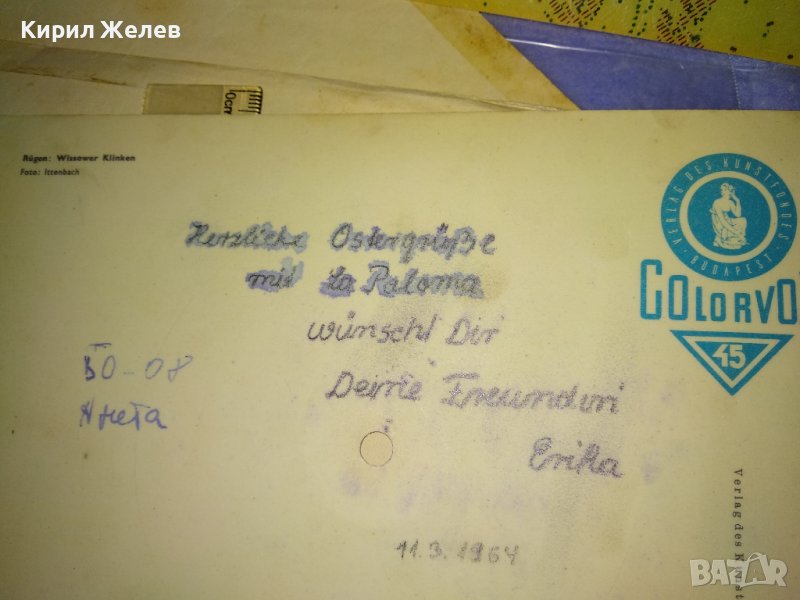 Кирил Желев
Rügen: Wissower Klinken
Foto: Ittenbach
VERLAG DES KUNSTFONDES
BUDAPEST
COLORVO
45
Herzliche Ostergrüße
mit La Paloma
wünscht Dir
Deine Freundin
Erika
50-08
Анета
11.3.1964
Verlag des
BAZAR